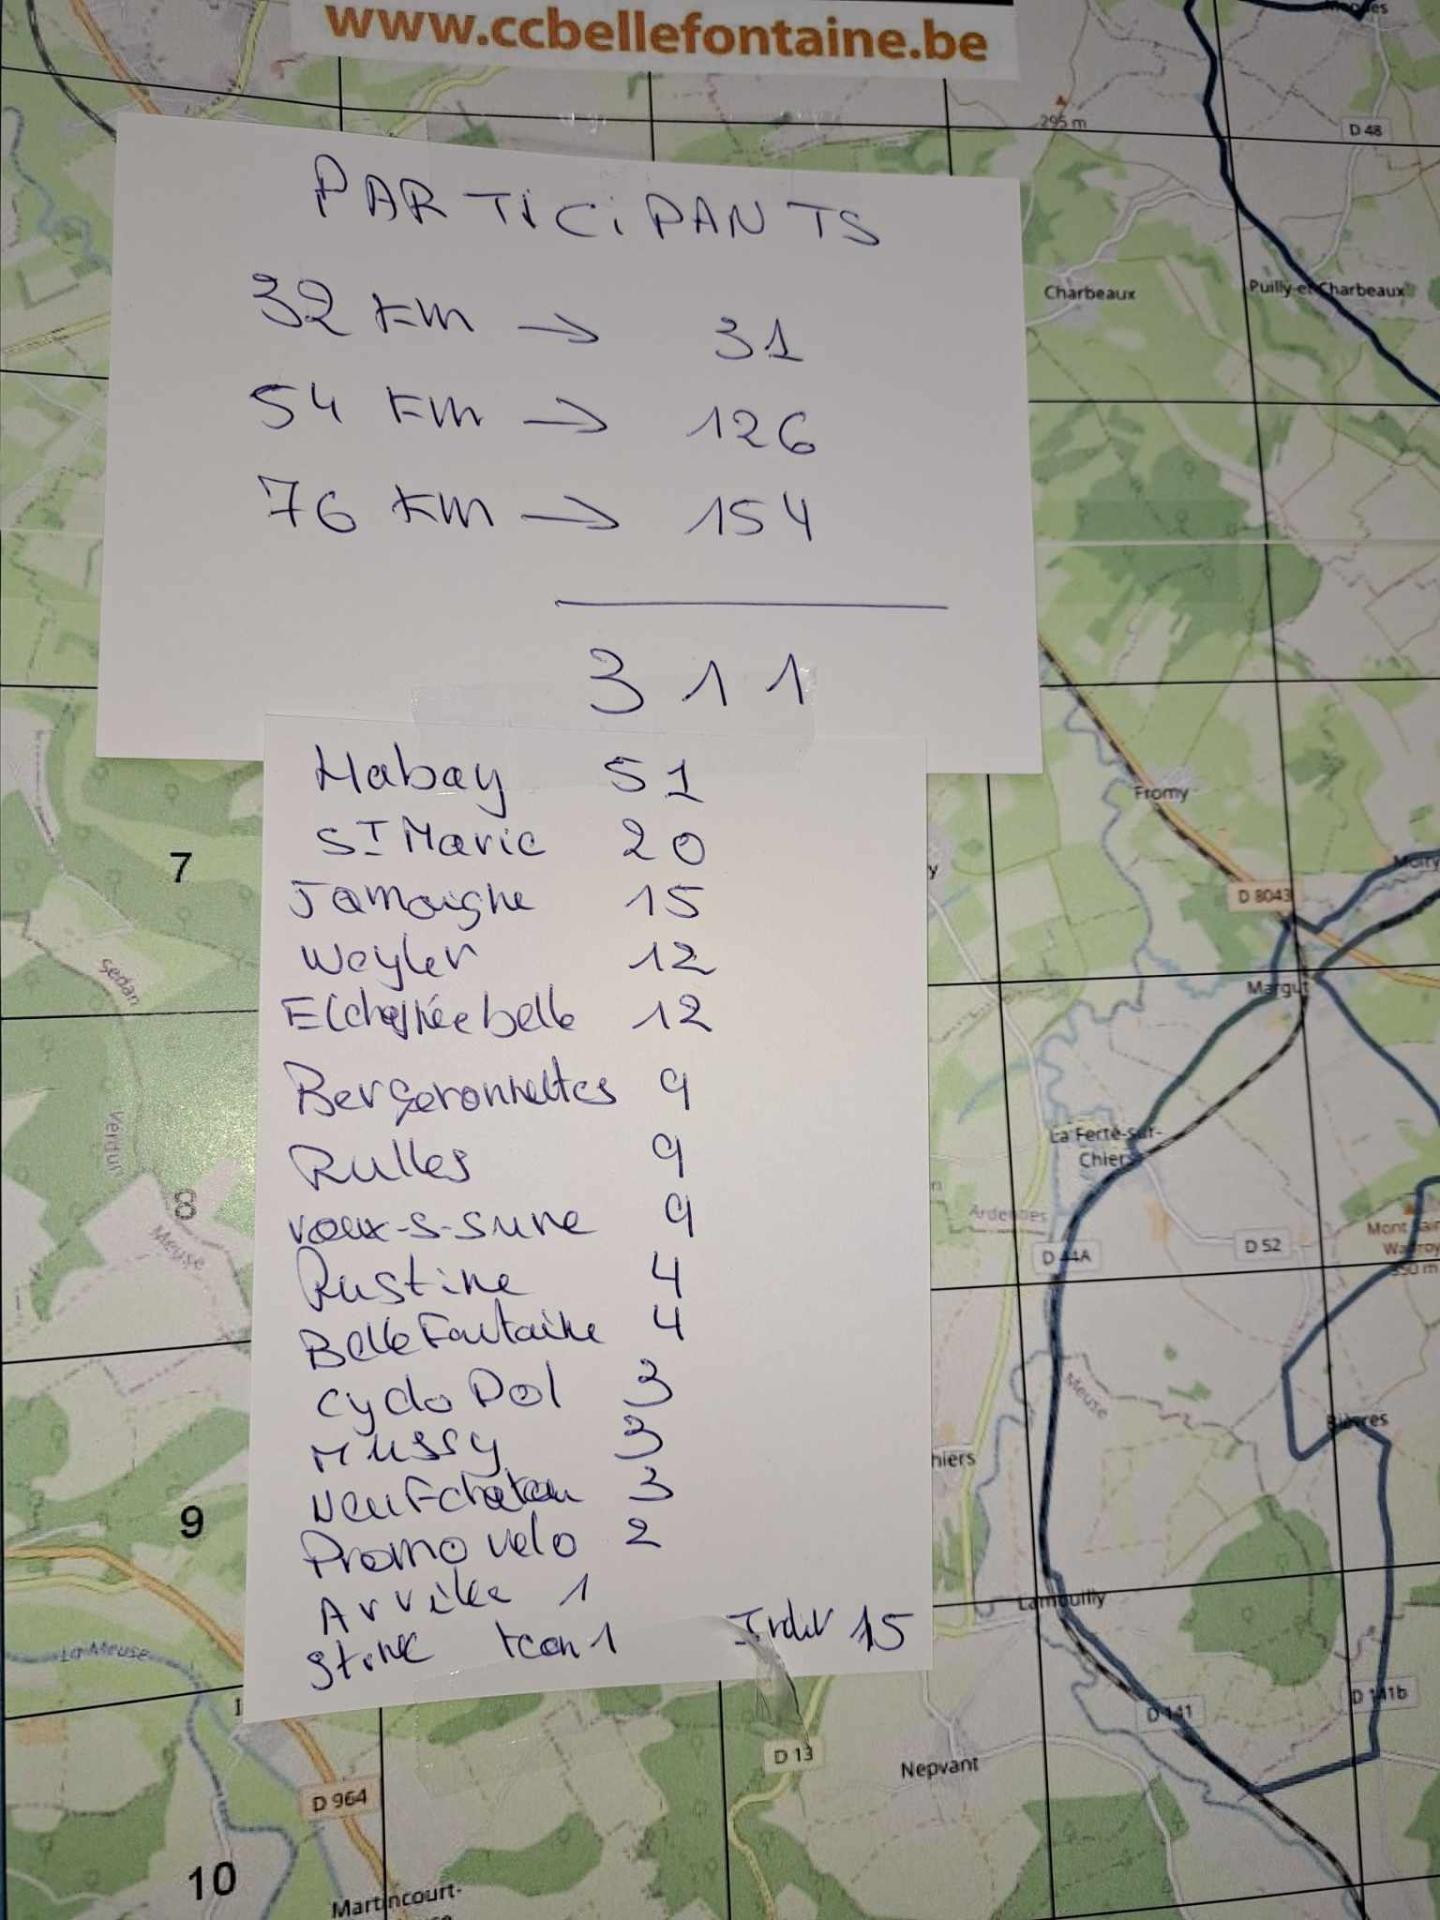 www.ccbellefontaine.be
PARTICIPANTS
32 km → 31
54 km → 126
76 km → 154
311
Habay 51
ST Marie 20
Jamoigne 15
Weyler 12
belle 12
Bergeronnettes 9
Rulles 9
vaux-s-sure 9
Rustine 4
Bellefontaine 4
Cyclo Dol 3
Mussy 3
Neufchateau 3
Promo velo 2
Arville 1
1 Indiv 15
295 m
D 48
Charbeaux
Puilly-et-Charbeaux
Fromy
D 8043
Margut
Moiry
7
Sedan
Verdun
8
Meuse
La Ferté-sur-
Chiers
Ardennes
D 44A
D 52
Mont
350 m
Meuse
Bièvres
hiers
9
Lamouilly
D 141
D 141b
La Meuse
D 13
Nepvant
D 964
10
Martincourt-